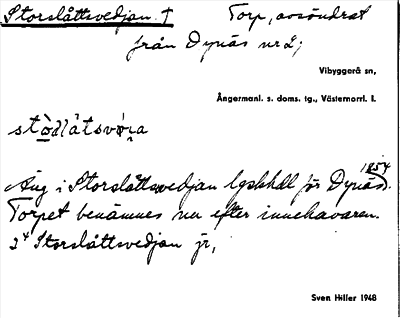 Storslåttsvedjan. † Torp, avsöndrat
från Dynäs nr 2;
Vibyggerå sn,
Ångermanl. s. doms. tg., Västernorrl. l.
1854
Äng i Storslåttsvedjan lgskhdl för Dynäs.
Torpet benämnes nu efter innehavaren.
Storslåttsvedjan jr,
Sven Hiller 1948